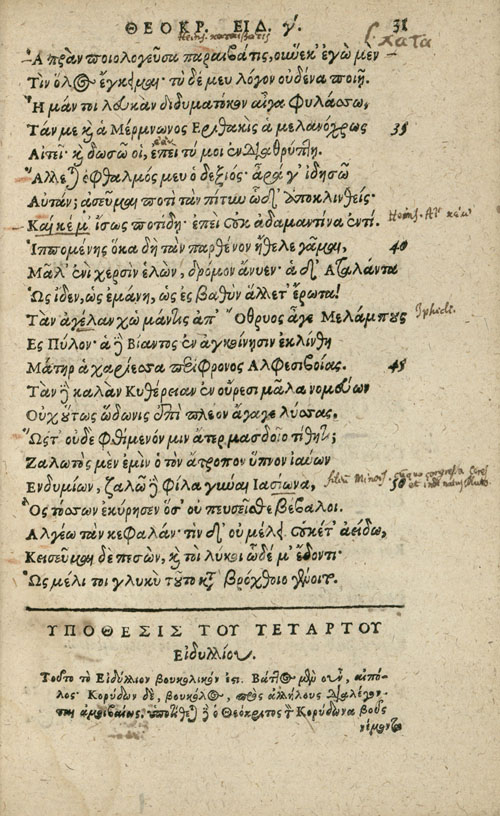 ΘΕΟΚΡ. ΕΙΔ. γ΄. 31
Ἁ πρὰν ποιολογεῦσα παραιβάτις, οὕνεκ' ἐγὼ μὲν
Τὶν ὅλος ἔγκειμαι· τὺ δέ μευ λόγον οὐδένα ποιῇ.
Ἦ μάν τοι λευκὰν διδυματόκον αἶγα φυλάσσω,
Τάν με καὶ ἁ Μέρμνωνος Ἐριθακὶς ἁ μελανόχρως 35
Αἰτεῖ· καὶ δωσῶ οἱ, ἐπεὶ τύ μοι ἐνδιαθρύπτῃ.
Ἅλλεται ὀφθαλμός μευ ὁ δεξιός· ἆρά γ' ἰδησῶ
Αὐτάν; ᾀσεῦμαι ποτὶ τὰν πίτυν ὧδ' ἀποκλινθείς·
Καί κέ μ' ἴσως ποτίδῃ· ἐπεὶ οὐκ ἀδαμαντίνα ἐντί.
Ἱππομένης ὅκα δὴ τὰν παρθένον ἤθελε γᾶμαι, 40
Μᾶλ' ἐνὶ χερσὶν ἑλὼν, δρόμον ἄνυεν· ἁ δ' Ἀταλάντα
Ὡς ἴδεν, ὡς ἐμάνη, ὡς ἐς βαθὺν ἅλλετ' ἔρωτα!
Τὰν ἀγέλαν χὠ μάντις ἀπ' Ὄθρυος ἆγε Μελάμπους
Ἐς Πύλον· ἁ δὲ Βίαντος ἐν ἀγκοίνῃσιν ἐκλίνθη
Μάτηρ ἁ χαρίεσσα περίφρονος Ἀλφεσιβοίας. 45
Τὰν δὲ καλὰν Κυθέρειαν ἐν οὔρεσι μᾶλα νομεύων
Οὐχ οὕτως ὥδωνις ἐπὶ πλέον ἄγαγε λύσσας.
Ὥστ' οὐδὲ φθίμενόν μιν ἄτερ μασδοῖο τίθητι;
Ζαλωτὸς μὲν ἐμὶν ὁ τὸν ἄτροπον ὕπνον ἰαύων
Ἐνδυμίων, ζαλῶ δὲ φίλα γύναι Ἰασίωνα, 50
Ὃς τόσσων ἐκύρησεν ὅσ' οὐ πευσεῖσθε βέβαλοι.
Ἀλγέω τὰν κεφαλάν· τὶν δ' οὐ μέλει. οὐκέτ' ἀείδω,
Κεισεῦμαι δὲ πεσὼν, καὶ τοὶ λύκοι ὧδέ μ' ἔδονται·
Ὡς μέλι τοι γλυκὺ τοῦτο κατὰ βρόχθοιο γένοιτο.
ΥΠΟΘΕΣΙΣ ΤΟΥ ΤΕΤΑΡΤΟΥ
Εἰδυλλίου.
Τοῦτο τὸ Εἰδύλλιον βουκολικόν ἐστι. Βάττος μὲν οὖν, αἰπό-
λος· Κορύδων δὲ, βουκόλος, πρὸς ἀλλήλους διαλέγον-
ται ἀμοιβαίως. ὑποτίθεται δὲ ὁ Θεόκριτος τὸν Κορύδωνα βοῦς
νέμοντα